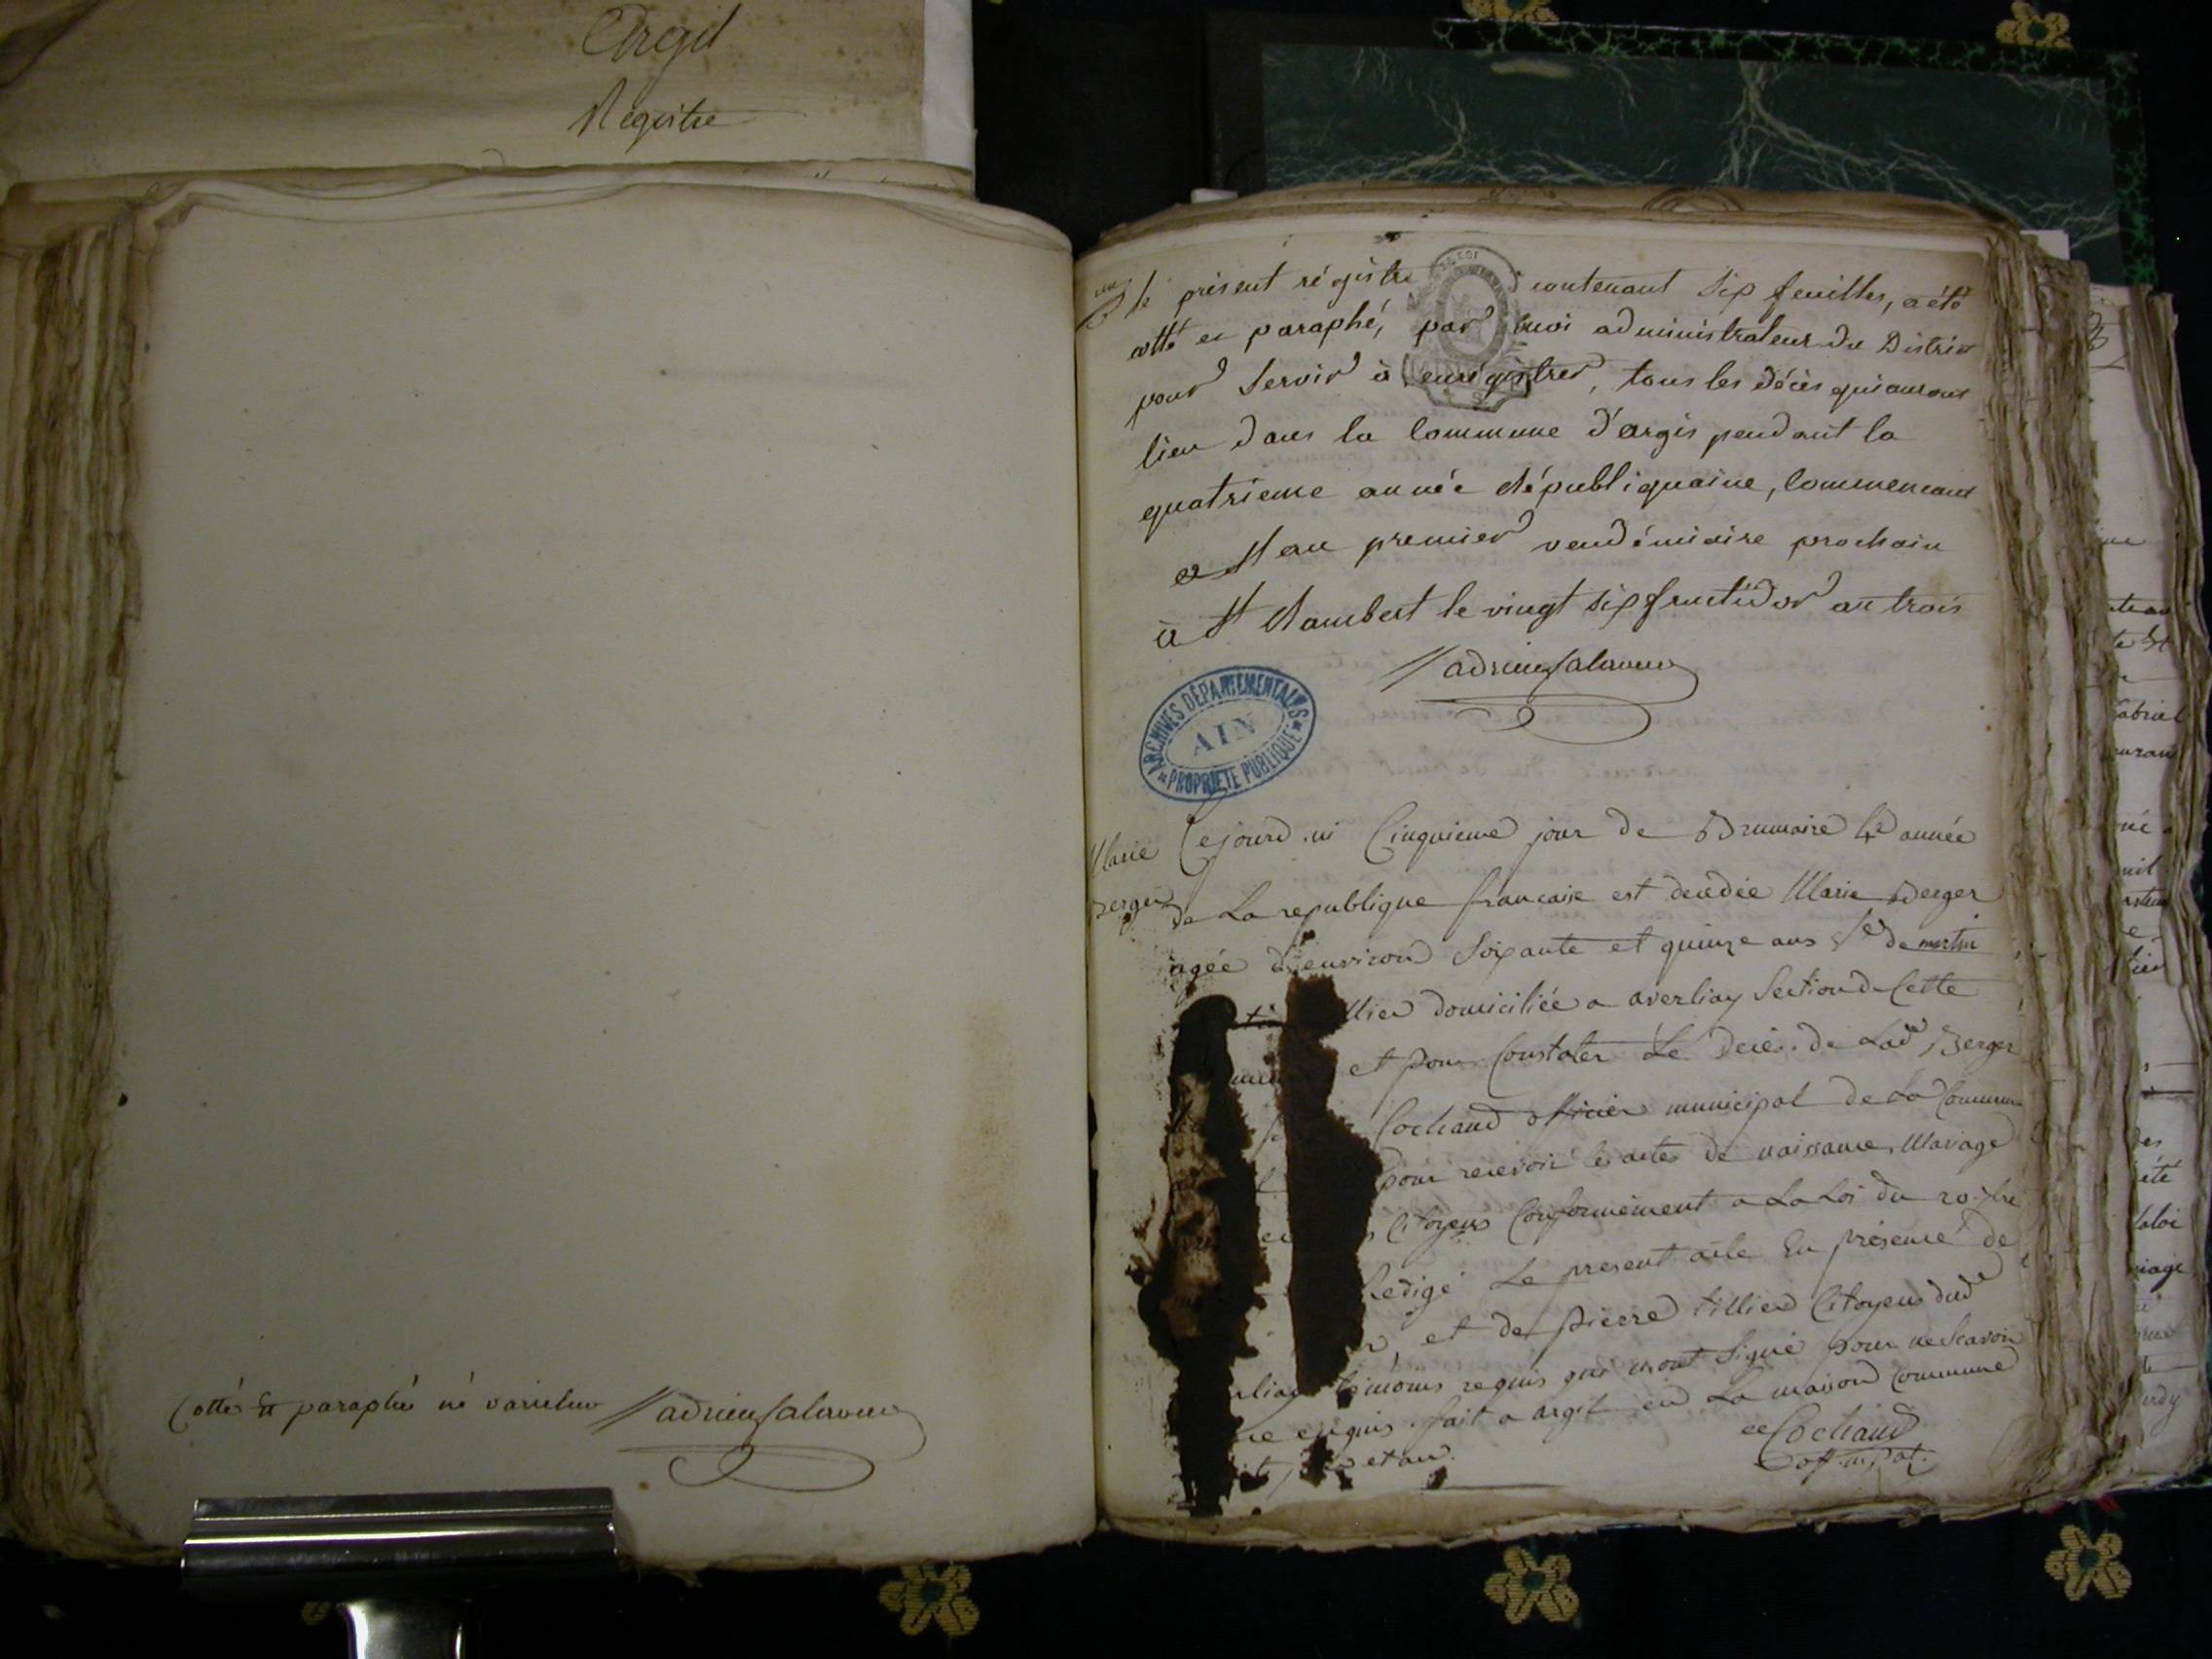 Argil
Registre
Cotté et paraphé né varietur
le présent régistre contenant six feuilles, a été
cotté et paraphé, par moi administrateur du District
pour servir à enrégistrer, tous les décès qui auront
lieu dans la commune d'argis pendant la
quatrieme année républiquaine, commencant
au premier vendémiaire prochain
à St Rambert le vingt six fructidor an trois
ARCHIVES DÉPARTEMENTALES
AIN
PROPRIÉTÉ PUBLIQUE
Marie
Berger
Cejourd.ui Cinquieme jour de Brumaire 4e année
de La republique francaise est decedée Marie Berger
agée d'environ soixante et quinze ans fe de martin
llier domiciliée a averliay Section de Cette
et pour Constater Le decé. de Lade Berger
Cochand officier municipal de La Commune
pour recevoir les actes de naissance, Mariage
Citoyens Conformement a La Loi du 20
Redigé Le present acte En présence de
et de pierre tillier Citoyens dud
temoins requis qui n'ont signé pour ne scavoir
enquis. fait a argil en La maison Commune
et an.
Cochand
off. mpal.